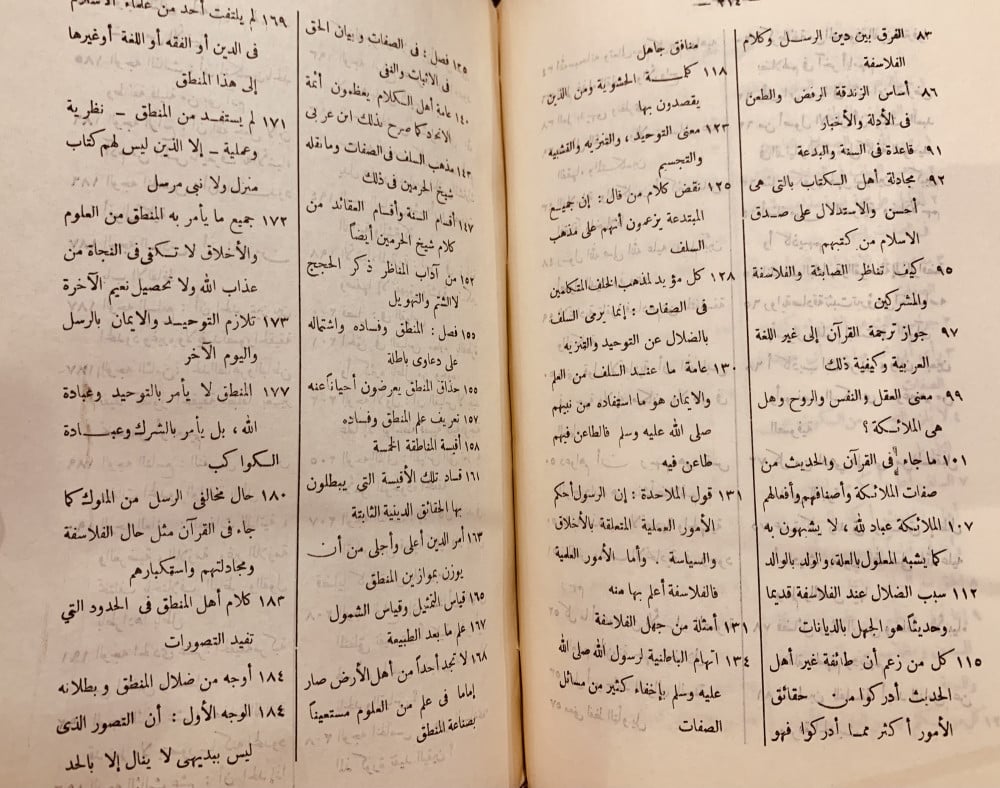 — ٣١٤ —
٨٣ الفرق بين دين الرسل وكلام
الفلاسفة
٨٦ أساس الزندقة الرفض والطعن
فى الأدلة والأخبار
٩١ قاعدة فى السنة والبدعة
٩٢ مجادلة أهل الكتاب بالتى هى
أحسن والاستدلال على صدق
الاسلام من كتبهم
٩٥ كيف تناظر الصابئة والفلاسفة
والمشركين
٩٧ جواز ترجمة القرآن إلى غير اللغة
العربية وكيفية ذلك
٩٩ معنى العقل والنفس والروح وهل
هى الملائكة ؟
١٠١ ما جاء فى القرآن والحديث من
صفات الملائكة وأصنافهم وأفعالهم
١٠٧ الملائكة عباد لله ، لا يشبهون به
كما يشبه المعلول بالعلة، والولد بالوالد
١١٢ سبب الضلال عند الفلاسفة قديما
وحديثاً هو الجهل بالديانات
١١٥ كل من زعم أن طائفة غير أهل
الحديث أدركوا من حقائق
الأمور أكثر مما أدركوا فهو
منافق جاهل
١١٨ كلمة الحشوية ومن الذين
يقصدون بها
١٢٣ معنى التوحيد ، والتنزيه والتشبيه
والتجسيم
١٢٥ نقض كلام من قال : إن جميع
المبتدعة يزعمون أنهم على مذهب
السلف
١٢٨ كل مؤيد لمذهب الخلف المتكلمين
فى الصفات : إنما يرمى السلف
بالضلال عن التوحيد والتنزيه
١٣٠ عامة ما عند السلف من العلم
والايمان هو ما استفاده من نبيهم
صلى الله عليه وسلم فالطاعن فيهم
طاعن فيه
١٣١ قول الملاحدة : إن الرسول أحكم
الأمور العملية المتعلقة بالأخلاق
والسياسة . وأما الأمور العلمية
فالفلاسفة أعلم بها منه
١٣١ أمثلة من جهل الفلاسفة
١٣٤ اتهام الباطنية لرسول الله صلى الله
عليه وسلم بإخفاء كثير من مسائل
الصفات
١٣٥ فصل : فى الصفات وبيان الحق
فى الاثبات والنفى
١٤٠ عامة أهل الكلام يعظمون أئمة
الاتحاد كما صرح بذلك ابن عربى
١٤٣ مذهب السلف فى الصفات وما نقله
شيخ الحرمين فى ذلك
١٤٧ أقسام السنة وأقسام العقائد من
كلام شيخ الحرمين أيضاً
١٥٢ من آداب المناظر ذكر الحجج
لا الشتم والتهويل
١٥٥ فصل : المنطق وفساده واشتماله
على دعاوى باطلة
١٥٥ حذاق المنطق يعرضون أحياناً عنه
١٥٧ تعريف علم المنطق وفساده
١٥٨ أقيسة المناطقة الخمسة
١٦١ فساد تلك الأقيسة التى يبطلون
بها الحقائق الدينية الثابتة
١٦٣ أمر الدين أعلى وأجلى من أن
يوزن بموازين المنطق
١٦٥ قياس التمثيل وقياس الشمول
١٦٧ علم ما بعد الطبيعة
١٦٨ لا تجد أحداً من أهل الأرض صار
إماما فى علم من العلوم مستعيناً
بصناعة المنطق
١٦٩ لم يلتفت أحد من علماء الاسلام
فى الدين أو الفقه أو اللغة أو غيرها
إلى هذا المنطق
١٧١ لم يستفد من المنطق – نظرية
وعملية – إلا الذين ليس لهم كتاب
منزل ولا نبى مرسل
١٧٢ جميع ما يأمر به المنطق من العلوم
والأخلاق لا تكفى فى النجاة من
عذاب الله ولا تحصيل نعيم الآخرة
١٧٣ تلازم التوحيد والايمان بالرسل
واليوم الآخر
١٧٧ المنطق لا يأمر بالتوحيد وعبادة
الله ، بل يأمر بالشرك وعبادة
الكواكب
١٨٠ حال مخالفى الرسل من الملوك كما
جاء فى القرآن مثل حال الفلاسفة
ومجادلتهم واستكبارهم
١٨٣ كلام أهل المنطق فى الحدود التي
تفيد التصورات
١٨٤ أوجه من ضلال المنطق وبطلانه
١٨٤ الوجه الأول : أن التصور الذى
ليس ببديهى لا ينال إلا بالحد